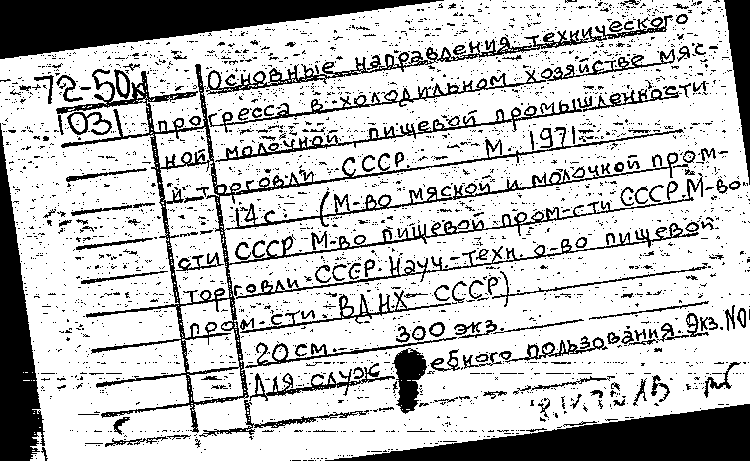 72-50к Основные направления технического
1031 прогресса в холодильном хозяйстве мяс-
ной, молочной, пищевой промышленности
и торговли СССР. М., 1971.
14 с. (М-во мясной и молочной пром-
сти СССР. М-во пищевой пром-сти СССР. М-во
торговли СССР. Науч.-техн. о-во пищевой
пром-сти. ВДНХ СССР).
20 см. 300 экз.
Для служебного пользования. Экз. №